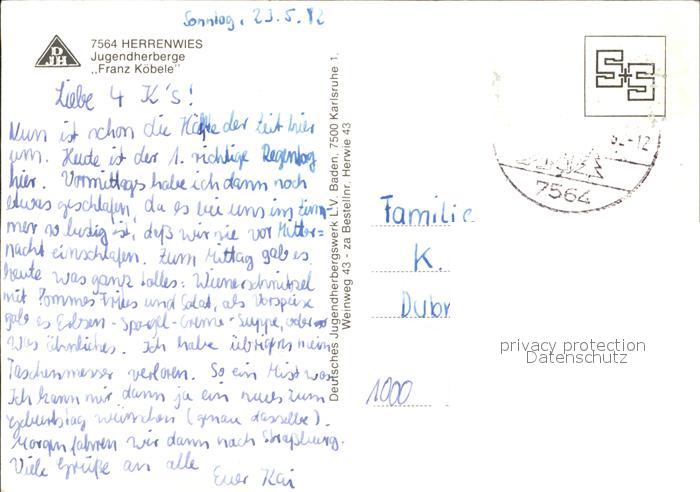 Sonntag, 23.5.82
DJH
7564 HERRENWIES
Jugendherberge
„Franz Köbele"
Liebe 4 K's!
Nun ist schon die Hälfte der Zeit hier
um. Heute ist der 1. richtige Regentag
hier. Vormittags habe ich dann noch
etwas geschlafen, da es bei uns im Zim-
mer so lustig ist, daß wir nie vor Mitter=
nacht einschlafen. Zum Mittag gab es
heute was ganz tolles: Wienerschnitzel
mit Pommes Frites und Salat, als Vorspeise
gab es Erbsen-Spargel-Creme-Suppe, oder so
was ähnliches. Ich habe übrigens mein
Taschenmesser verloren. So ein Mist was
Ich kann mir dann ja ein neues zum
Geburtstag wünschen (genau dasselbe).
Morgen fahren wir dann nach Straßburg.
Viele Grüße an alle
Euer Kai
Deutsches Jugendherbergswerk L.V. Baden, 7500 Karlsruhe 1,
Weinweg 43 - za Bestellnr. Herwie 43
S+S
-12
7564
Familie
K.
Dubr
1000
privacy protection
Datenschutz